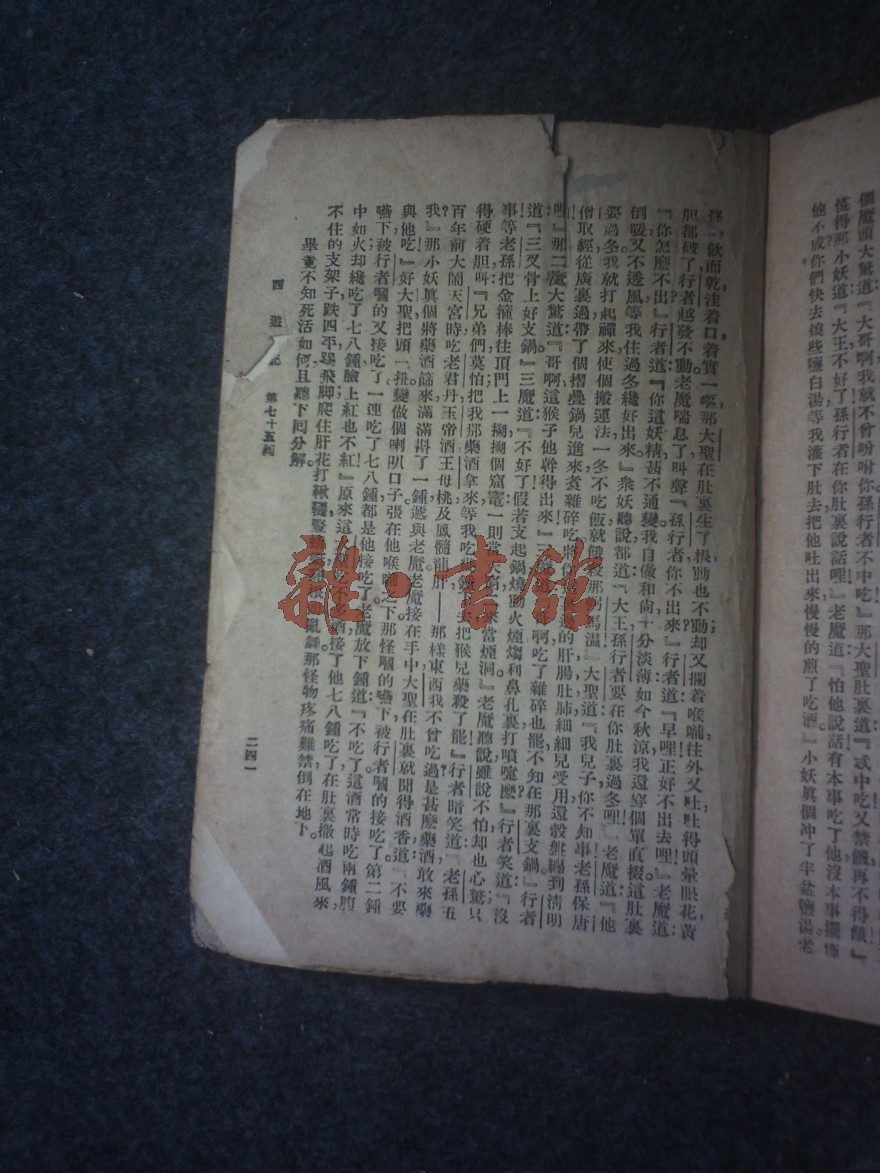 個魔頭大驚道『大哥啊我就不曾吩咐你孫行者不中吃』那大聖肚裏道『忒中吃又禁饑再不得餓』
慌得那小妖道『大王不好了孫行者在你肚裏說話哩』老魔道『怕他說話有本事吃了他沒本事擺佈
他不成你們快去燒些鹽白湯等我灌下肚去把他吐出來慢慢的煎了吃酒』小妖眞個冲了半盆鹽湯老
怪一飲而乾洼着口着實一嘔那大聖在肚裏生了根動也不動却又攔着喉嚨往外又吐吐得頭暈眼花黃
胆都破了行者越發不動老魔喘息了叫聲『孫行者你不出來』行者道『早哩正好不出去哩』老魔道
『你怎麽不出』行者道『你這妖精甚不通變我自做和尙十分淡薄如今秋涼我還穿個單直掇這肚裏
倒暖又不透風等我住過冬纔好出來』衆妖聽說都道『大王孫行者要在你肚裏過冬哩』老魔道『他
要過冬我就打起禪來使個搬運法一冬不吃飯就餓殺那弼馬溫』大聖道『我兒子你不知事老孫保唐
僧取經從廣裏過帶了個摺疊鍋兒進來煮雜碎吃將你的肝腸肚肺細細兒受用還彀盤纏到清明
哩』那二魔大驚道『哥啊這猴子他幹得出來』三啊吃了雜碎也罷不知在那裏支鍋』行者
道『三叉骨上好支鍋』三魔道『不好了假若支起鍋燒動火煙熰到鼻孔裏打噴嚏麽』行者笑道『沒
事等老孫把金箍棒往頂門上一搠搠個窟窿一則當天窗二來當煙洞』老魔聽說雖說不怕却也心驚只
得硬着胆叫『兄弟們莫怕把我那藥酒拿來等我吃幾鍾下去把猴兒藥殺了罷』行者暗笑道『老孫五
百年前大鬧天宮時吃老君丹玉帝酒王母桃及鳳髓龍肝——那樣東西我不曾吃過是甚麽藥酒敢來藥
我』那小妖眞個將藥酒篩來滿滿斟了一鍾遞與老魔老魔接在手中大聖在肚裏就聞得酒香道『不要
與他吃』好大聖把頭一扭變做個喇叭口子張在他喉嚨之下那怪嘓的嚥下被行者嘓的接吃了第二鍾
嚥下被行者嘓的又接吃了一連吃了七八鍾都是他接吃了老魔放下鍾道『不吃了這酒常時吃兩鍾腹
中如火却纔吃了七八鍾臉上紅也不紅』原來這大聖吃不多酒接了他七八鍾吃了在肚裏撒起酒風來
不住的支架子跌四平踢飛脚爬住肝花打鞦韆豎亂舞那怪物疼痛難禁倒在地下
畢竟不知死活如何且聽下囘分解
西遊記 第七十五囘 二四一
雜·書館